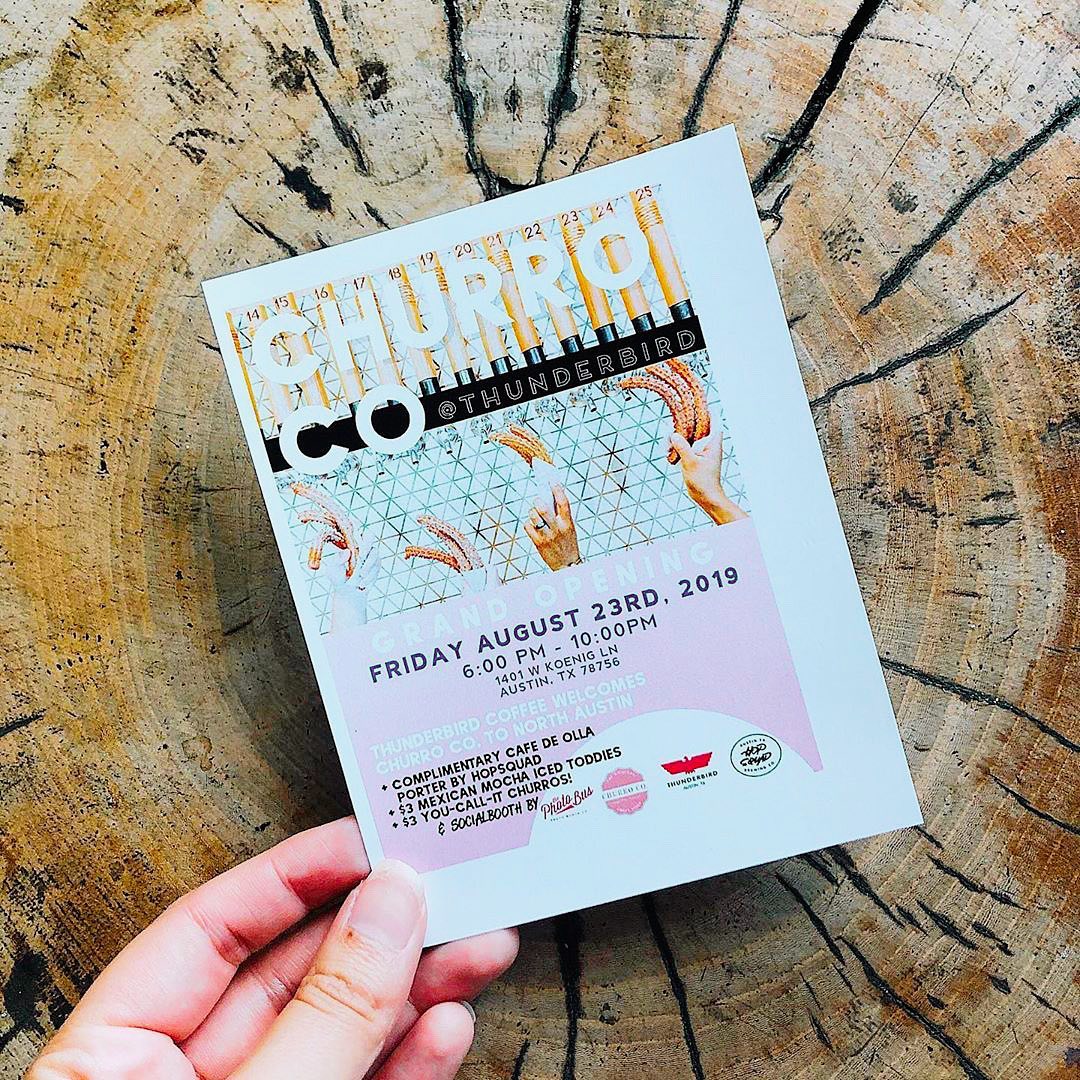 14 15 16 17 18 19 20 21 22 23 24 25
CHURRO
CO @THUNDERBIRD
GRAND OPENING
FRIDAY AUGUST 23RD, 2019
6:00 PM - 10:00PM
1401 W KOENIG LN
AUSTIN, TX 78756
THUNDERBIRD COFFEE WELCOMES
CHURRO CO. TO NORTH AUSTIN
+ COMPLIMENTARY CAFE DE OLLA
PORTER BY HOPSQUAD
+ $3 MEXICAN MOCHA ICED TODDIES
+ $3 YOU-CALL-IT CHURROS!
& SOCIALBOOTH BY
Photo Bus
CHURRO CO.
THUNDERBIRD
AUSTIN TX
AUSTIN TX
HOP
SQUAD
BREWING CO